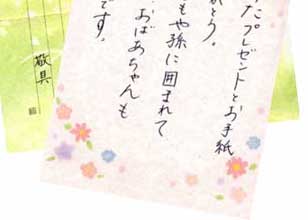 たプレゼントとお手紙
がとう。
もや孫に囲まれて
おばあちゃんも
です。
敬具